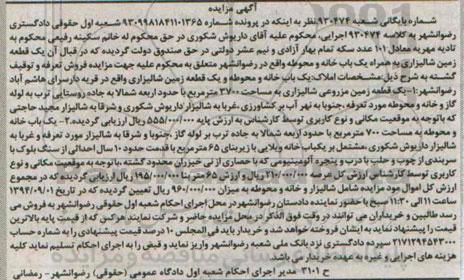 آگهی مزایده
شماره بایگانی شعبه ۹۳۰۴۷۴ نظر به اینکه در پرونده شماره ۹۳۰۹۹۸۱۸۴۱۱۰۱۳۶۵ شعبه اول حقوقی دادگستری
رضوانشهر به کلاسه ۹۳۰۴۷۴ اجرایی، محکوم علیه آقای داریوش شکوری در حق محکوم له خانم سکینه رفیعی محکوم به
تادیه مهریه معادل ۱۰۱ عدد سکه تمام بهار آزادی و نیم عشر دولتی در حق صندوق دولت گردیده که در قبال آن یک قطعه
زمین شالیزاری به همراه یک باب خانه و محوطه واقع در رضوانشهر متعلق به محکوم علیه جهت مزایده فروش تعرفه و توقیف
گشته به شرح ذیل: مشخصات املاک: یک باب خانه و محوطه و یک قطعه زمین شالیزاری واقع در قریه دارسرای هاشم آباد
رضوانشهر: ۱- یک قطعه زمین مزروعی شالیزاری به مساحت ۳۷۰۰ مترمربع با حدود اربعه شمالا به جاده روستایی ترب به لوله
گاز و خانه و محوطه مورد تعرفه، جنوبا به نهر آب بر کشاورزی، غربا به شالیزار داریوش شکوری و شرقا به شالیزار مجید حاجتی
که باتوجه به موقعیت مکانی و نوع کاربری توسط کارشناس به ارزش پایه ۵۵۵/۰۰۰/۰۰۰ ریال ارزیابی گردیده. ۲- یک باب خانه
و محوطه به مساحت ۷۰۰ مترمربع با حدود اربعه شمالا به جاده ترب بر لوله گاز، جنوبا و شرقا به شالیزار مورد تعرفه و غربا به
شالیزار داریوش شکوری، مشتمل بر یکباب خانه ویلایی با زیربنای ۶۵ مترمربع با قدمت حدود ۱۰ سال احداثی از سنگ بلوک با
سربندی از چوب و حلب با درب و پنجره آلومینیومی که با حصاری از نی خیزران محدود گشته، باتوجه به موقعیت مکانی و نوع
کاربری توسط کارشناس ارزش کل عرصه ۲۱۰/۰۰۰/۰۰۰ ریال و ارزش ۶۵ متر بنا به ۱۹۵/۰۰۰/۰۰۰ ریال ارزیابی گردیده که در مجموع
ارزش کل اموال مود مزایده شامل شالیزار و خانه و محوطه به میزان ۹۶۰/۰۰۰/۰۰۰ ریال تعیین گردیده که در تاریخ ۱۳۹۴/۰۹/۰۱
ساعت ۱۱ الی ۱۱:۳۰ صبح با حضور نماینده دادستان رضوانشهر در محل اجرای احکام شعبه اول حقوقی رضوانشهر به فروش می
رسد طالبین و خریداران می توانند در وقت فوق الذکر در محل مزایده حاضر و شرکت نمایند هرکس که از قیمت پایه بالاترین
قیمت را پیشنهاد نماید به ایشان فروخته خواهد شد و خریدار باید فی المجلس ۱۰ درصد قیمت پیشنهادی را به شماره حساب
۲۱۷۱۲۹۴۵۴۳۰۰۰ سپرده دادگستری نزد بانک ملی شعبه رضوانشهر واریز نماید و قبض را به اجرای احکام تسلیم نماید کلیه
هزینه های اجرایی و غیره به عهده خریدار می باشد
ح ۳۱۰۱ مدیر اجرای احکام شعبه اول دادگاه عمومی (حقوقی) رضوانشهر- رمضانی